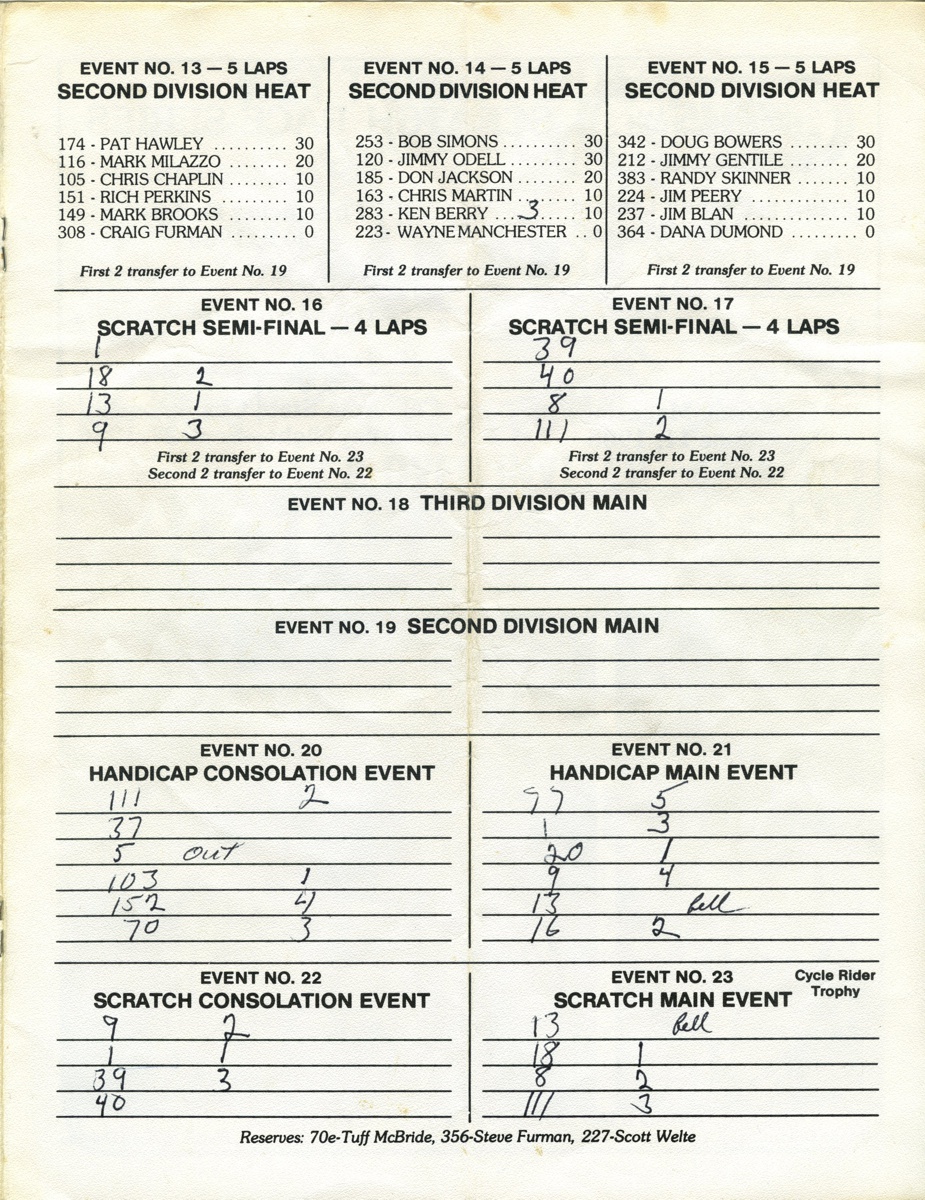 EVENT NO. 13 — 5 LAPS
SECOND DIVISION HEAT
174 - PAT HAWLEY .......... 30
116 - MARK MILAZZO ........ 20
105 - CHRIS CHAPLIN ....... 10
151 - RICH PERKINS ........ 10
149 - MARK BROOKS ........ 10
308 - CRAIG FURMAN ......... 0
First 2 transfer to Event No. 19
EVENT NO. 14 — 5 LAPS
SECOND DIVISION HEAT
253 - BOB SIMONS .......... 30
120 - JIMMY ODELL ......... 30
185 - DON JACKSON ......... 20
163 - CHRIS MARTIN ........ 10
283 - KEN BERRY ... 3 ...... 10
223 - WAYNE MANCHESTER .. 0
First 2 transfer to Event No. 19
EVENT NO. 15 — 5 LAPS
SECOND DIVISION HEAT
342 - DOUG BOWERS ........ 30
212 - JIMMY GENTILE ........ 20
383 - RANDY SKINNER ...... 10
224 - JIM PEERY ............ 10
237 - JIM BLAN ............. 10
364 - DANA DUMOND ......... 0
First 2 transfer to Event No. 19
EVENT NO. 16
SCRATCH SEMI-FINAL — 4 LAPS
1
18 2
13 1
9 3
First 2 transfer to Event No. 23
Second 2 transfer to Event No. 22
EVENT NO. 17
SCRATCH SEMI-FINAL — 4 LAPS
39
40
8 1
111 2
First 2 transfer to Event No. 23
Second 2 transfer to Event No. 22
EVENT NO. 18 THIRD DIVISION MAIN
EVENT NO. 19 SECOND DIVISION MAIN
EVENT NO. 20
HANDICAP CONSOLATION EVENT
111 2
37
5 OUT
103 1
152 4
70 3
EVENT NO. 21
HANDICAP MAIN EVENT
99 5
1 3
20 1
9 4
13 fell
16 2
EVENT NO. 22
SCRATCH CONSOLATION EVENT
9 2
1 1
39 3
40
EVENT NO. 23
SCRATCH MAIN EVENT
Cycle Rider
Trophy
13 fell
18 1
8 2
111 3
Reserves: 70e-Tuff McBride, 356-Steve Furman, 227-Scott Welte